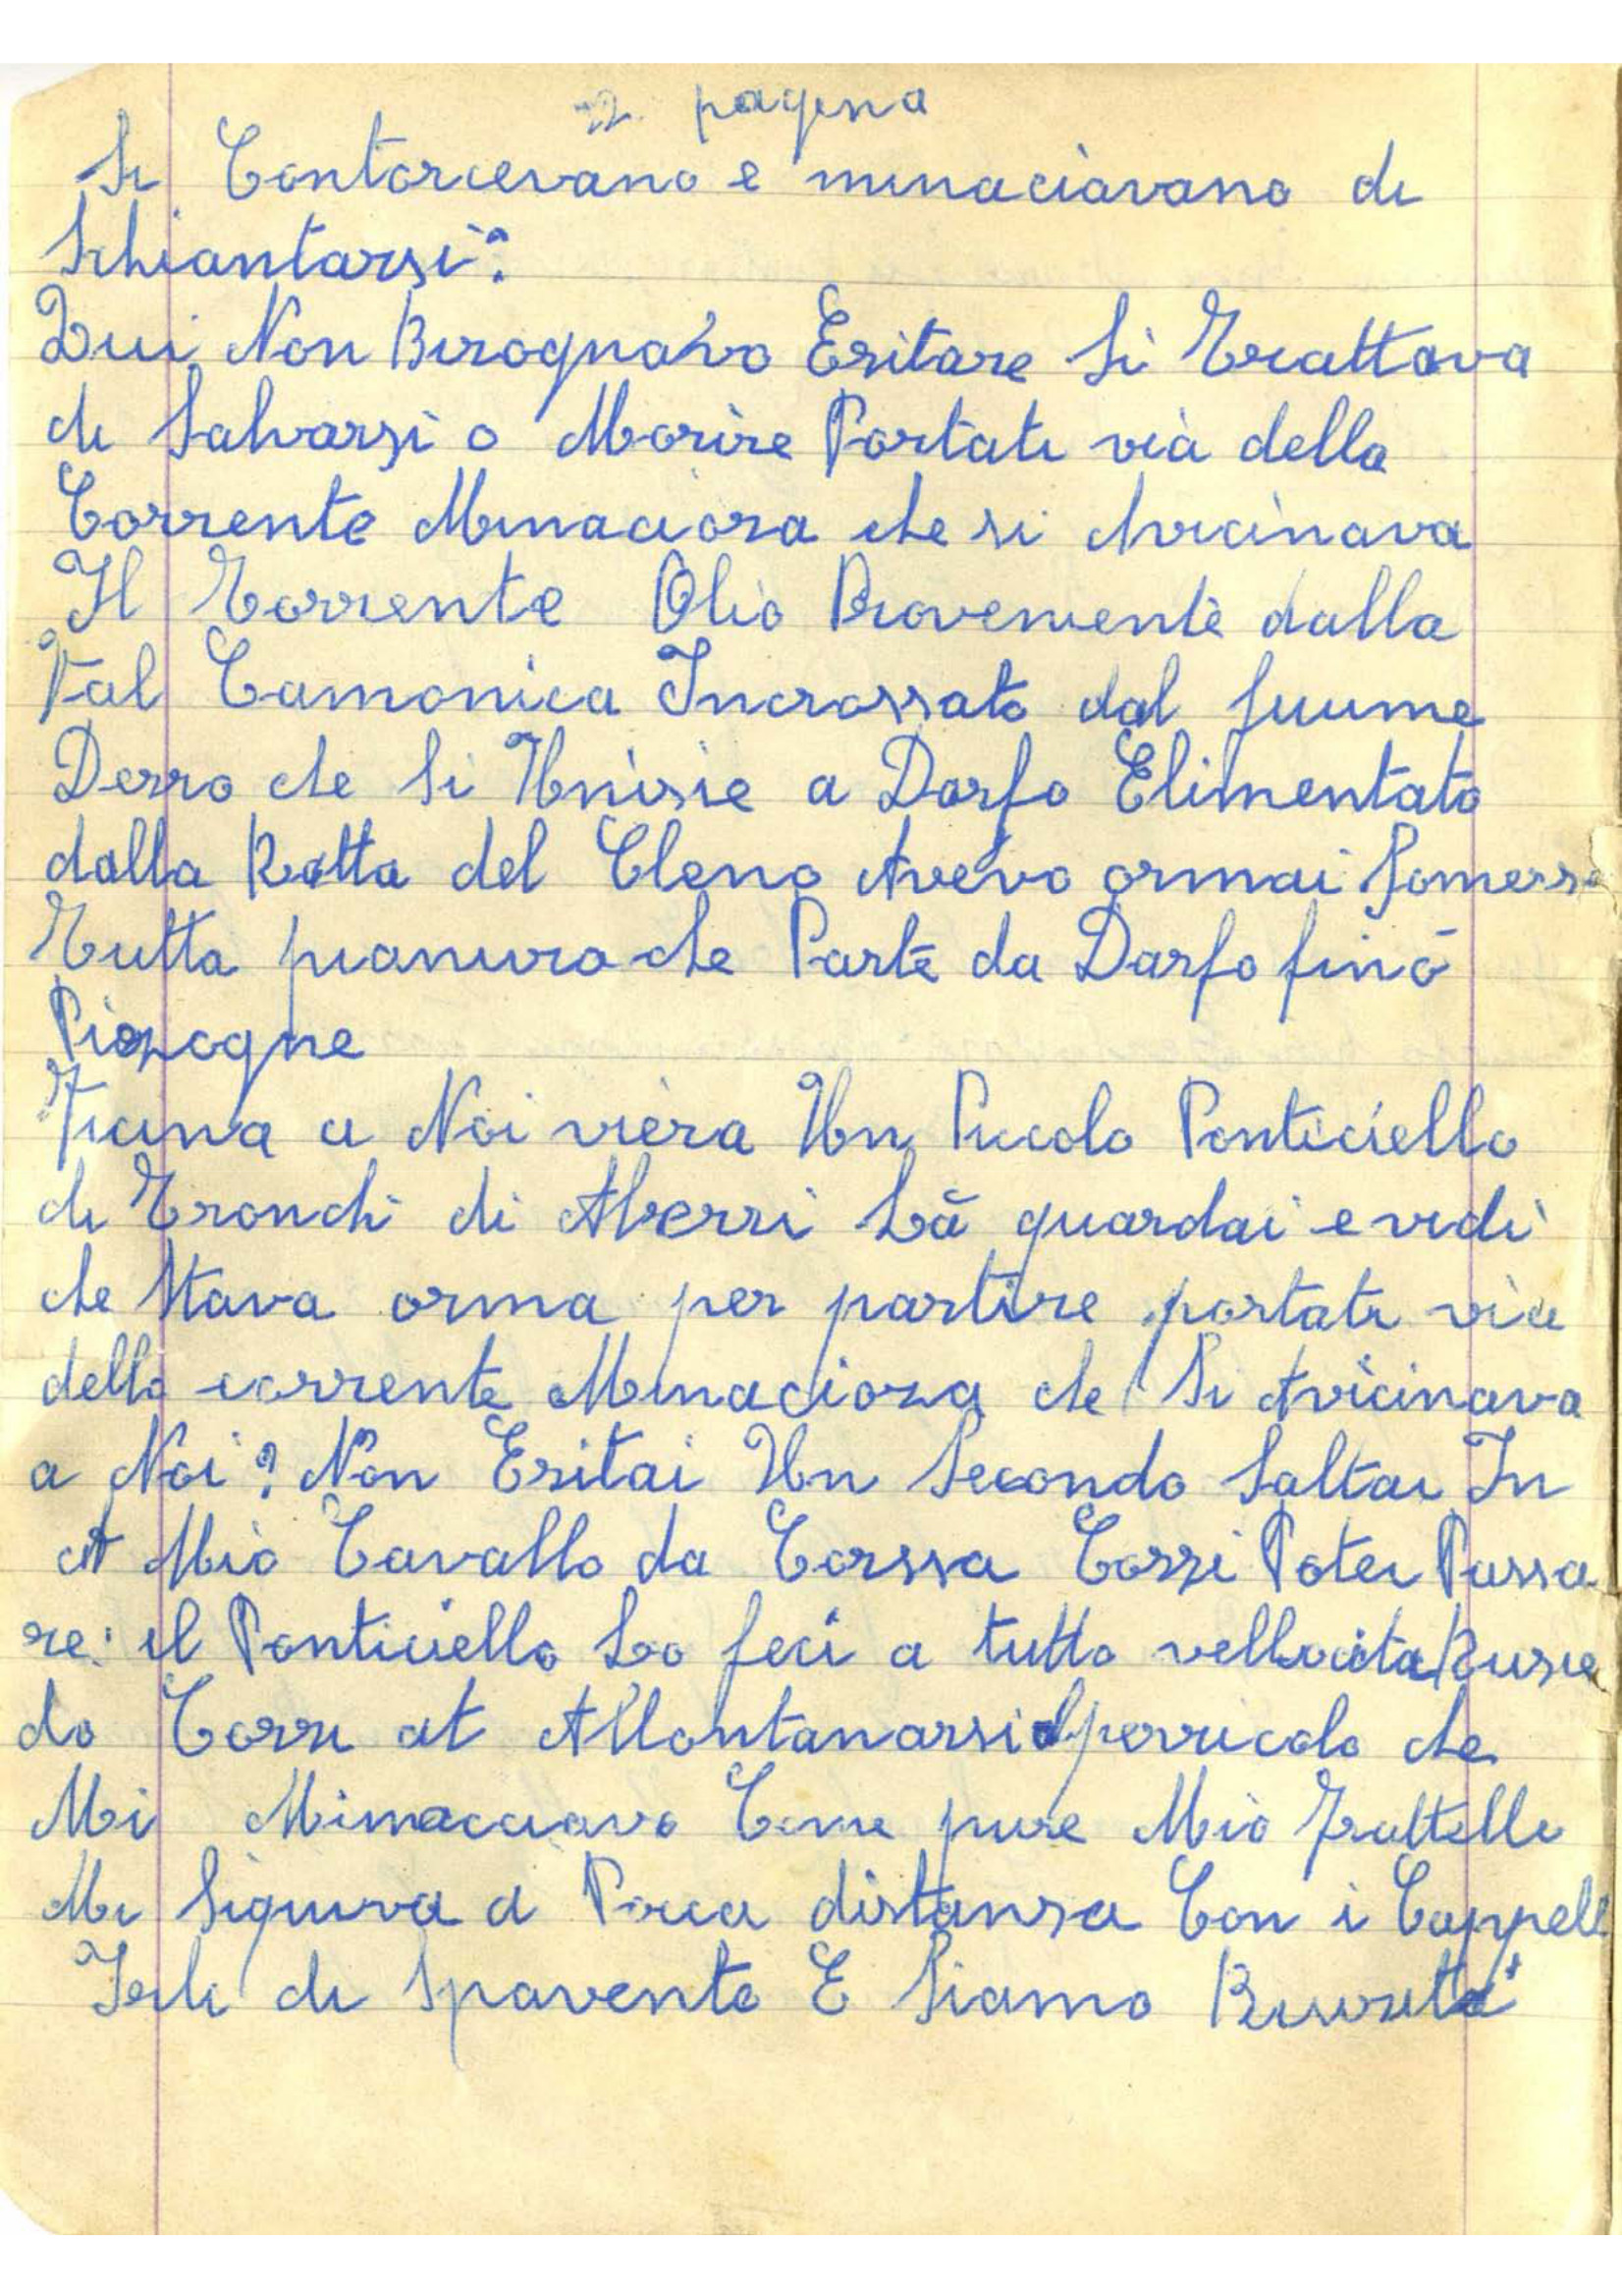 2. pagina
Si Contorcevano e minaciavano di
Schiantarsi?
Qui Non Bisognavo Esitare Si Trattava
di Salvarsi o Morire Portati via della
Corrente Minaciosa che si Avicinava
Il Torrente Olio Proveniente dalla
Val Camonica Incrossato dal fiume
Derzo che Si Unisie a Darfo Elimentato
dalla Rotta del Gleno Avevo ormai Somerso
Tutta pianura che Parte da Darfo fino
Pisogne
Vicina a Noi viera Un Piccolo Ponticiello
di Tronchi di Alberri Là guardai e vidi
che Stava orma per partire portati via
della corrente Minaciosa che Si Avicinava
a Noi? Non Esitai Un Secondo Saltai In
at Mio Cavallo da Corssa Corsi Potei Passa
re: il Ponticiello Lo feci a tutto vellocita Riusie
do Corsi at Allontanarsi perricolo che
Mi Minacciavo Come pure Mio Frattello
Mi Siguiva a Pocca distansa Con i Cappell
Ierti di Spavento E Siamo Riusciti